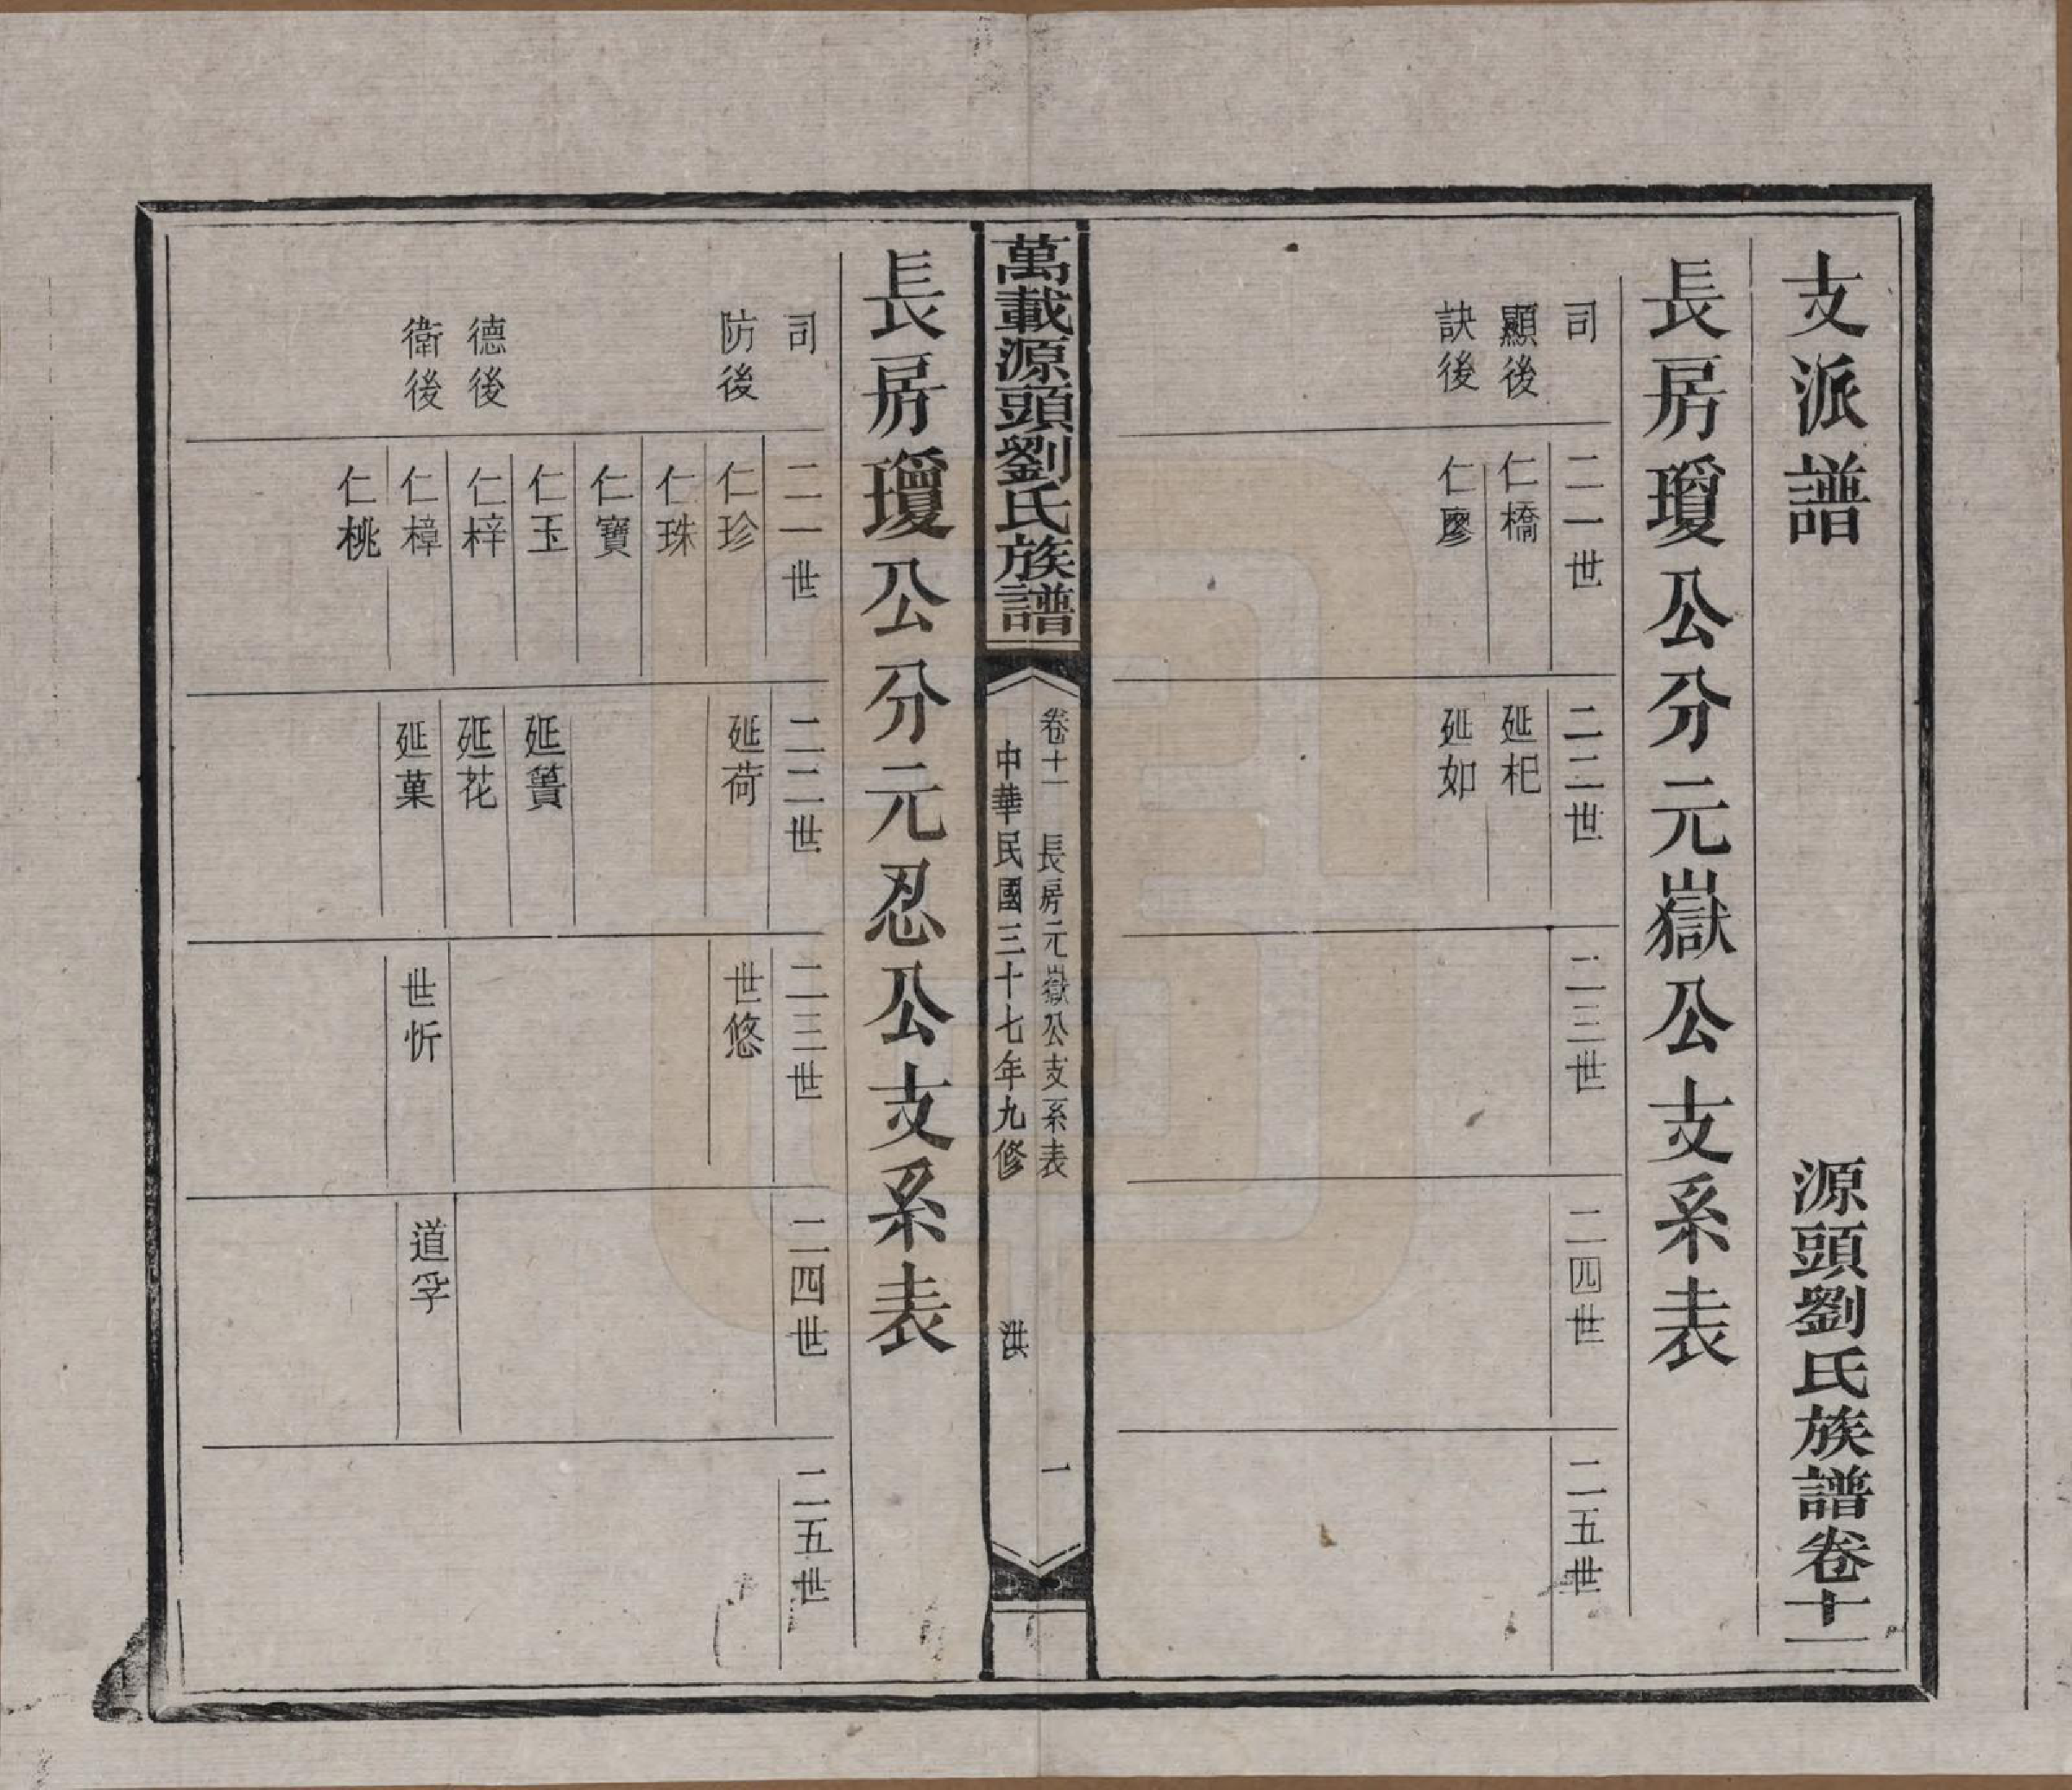 支派譜
源頭劉氏族譜卷十一
長房瓊公分元嶽公支系表
司
二一世
二二世
二三世
二四世
二五世
顯後
仁橋
延杞
訣後
仁廖
延如
萬載源頭劉氏族譜
卷十一
長房元嶽公支系表
一
中華民國三十七年九修
洪
長房瓊公分元忍公支系表
司
二一世
二二世
二三世
二四世
二五世
防後
仁珍
延荷
世悠
仁珠
仁寶
仁玉
延簣
德後
仁梓
延花
衛後
仁樟
延菓
世忻
道孚
仁桃